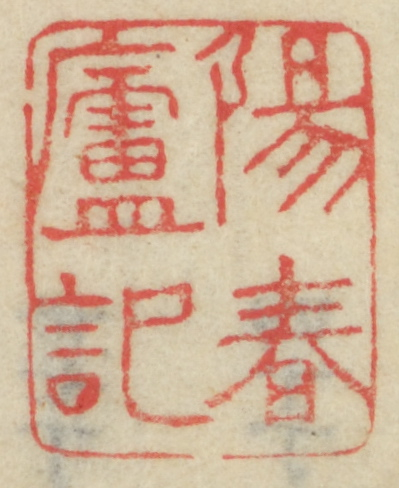 陽春
廬記